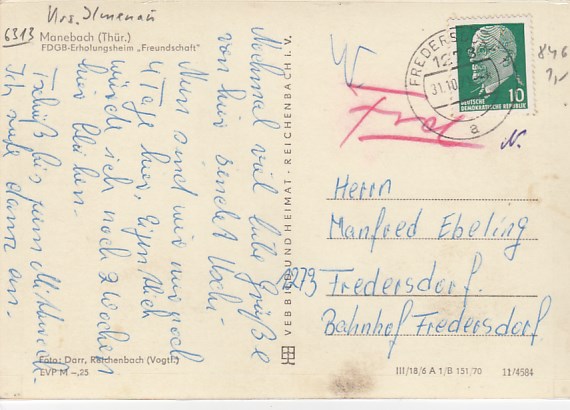 Krs. Ilmenau
6313 Manebach (Thür.)
FDGB-Erholungsheim „Freundschaft"
Nochmal viel liebe Grüße
von hier sendet Uschi.
Nun sind wir nur noch
4 Tage hier, eigentlich
würde ich noch 2 Wochen
hier bleiben.
Tschüß bis zum Mittwoch
Ich rufe dann an.
Foto: Darr, Reichenbach (Vogtl.)
EVP M –,25
VEB BILD UND HEIMAT · REICHENBACH I. V.
FREDERS
1273
31.10
a
10
DEUTSCHE
DEMOKRATISCHE REPUBLIK
846
1,–
N.
Herrn
Manfred Ebeling
1273 Fredersdorf.
Bahnhof Fredersdorf
III/18/6 A 1/B 151/70 11/4584